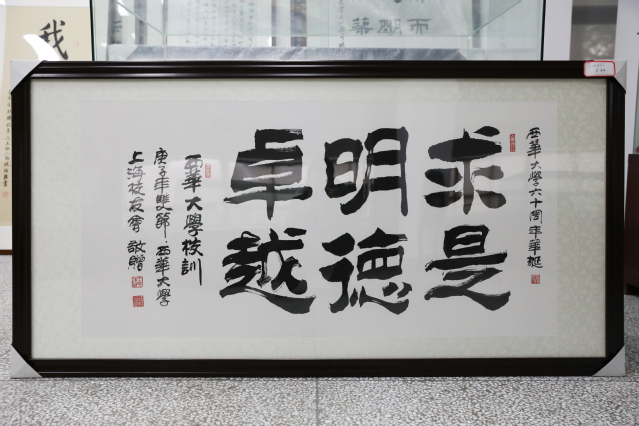 西華大學六十周年華誕
求是
明德
卓越
西華大學校訓
庚子年雙節·西華大學
上海校友會 敬贈
我